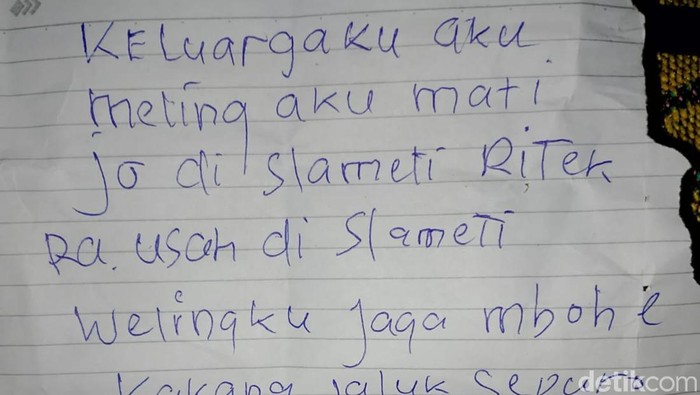 KELuargaKu aku
meling aku mati
jo di slameti RiTek
Ra. usah di Slameti
Welingku jaga mboh e
Kakang jaluk sepura
detikcom